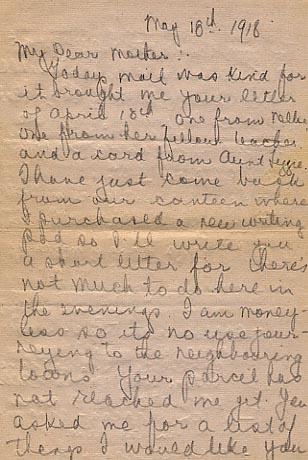 May 18th. 1918
My Dear Mother:-
Today mail was kind for
it brought me your letter
of April 18th one from Nellie
one from her fellow teacher
and a card from Aunt
I have just come back
from our canteen where
I purchased a new writing
pad so I'll write you
a short letter for there's
not much to do here in
the evenings. I am money-
less so its no use jour-
neying to the neighbouring
towns. Your parcel has
not reached me yet. You
asked me for a list of
things I would like you